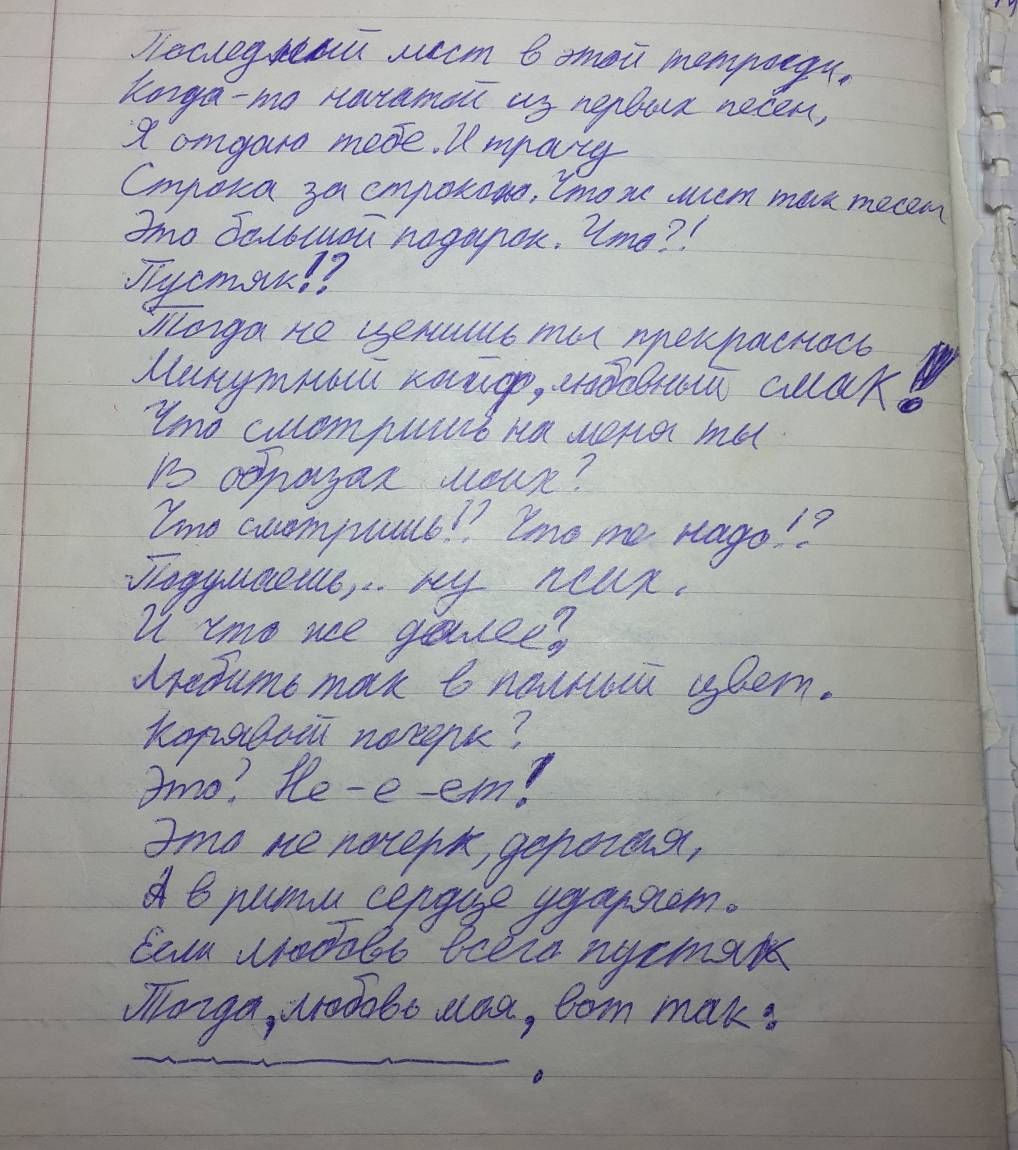 Последний лист в этой тетради.
Когда-то начатой из первых песен,
Я отдаю тебе. И трачу
Строка за строкою. Что ж лист так тесен
Это большой подарок. Что?!
Пустяк!?
Тогда не ценишь ты прекраснось
Минутный кайф, любовный смак!
Что смотришь на меня ты
В образах моих?
Что смотришь!? Что те надо!?
Подумаешь,.. ну псих.
И что же далее?
Любить так в полный цвет.
Корявый почерк?
Это? Не-е-ет!
Это не почерк, дорогая,
А в ритм сердце ударяет.
Если любовь всего пустяк
Тогда, любовь моя, вот так: